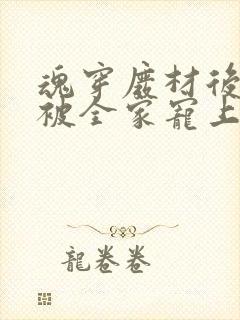 魂穿廢材後
被全家寵上
龍卷卷